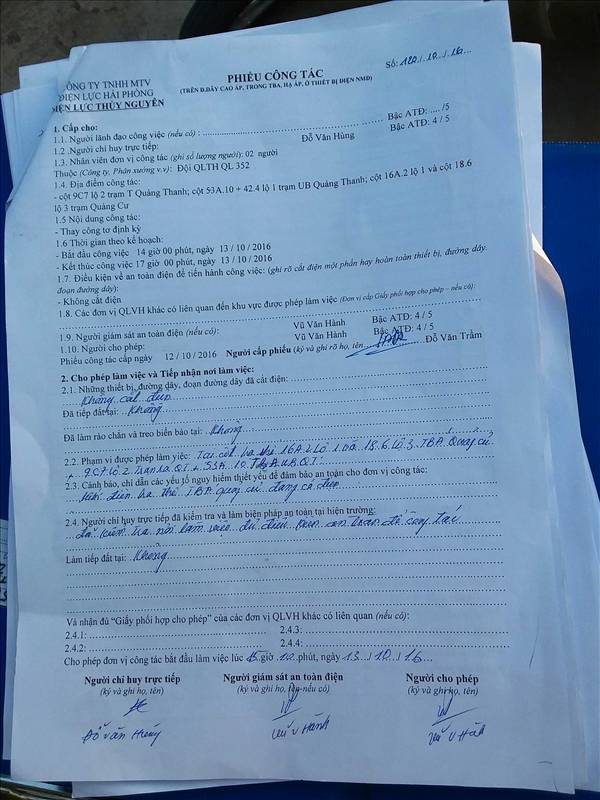 CÔNG TY TNHH MTV
ĐIỆN LỰC HẢI PHÒNG
ĐIỆN LỰC THỦY NGUYÊN
PHIẾU CÔNG TÁC
(TRÊN Đ.DÂY CAO ÁP, TRONG TBA, HẠ ÁP, Ở THIẾT BỊ ĐIỆN NMĐ)
Số: 120./.10../.16...
1. Cấp cho:
1.1. Người lãnh đạo công việc (nếu có) : ........ Bậc ATĐ: .... /5
1.2 .Người chỉ huy trực tiếp: Đỗ Văn Hùng Bậc ATĐ: 4 / 5
1.3. Nhân viên đơn vị công tác (ghi số lượng người): 02 người
Thuộc (Công ty, Phân xưởng v.v): Đội QLTH QL 352
1.4. Địa điểm công tác:
- cột 9C7 lộ 2 trạm T Quảng Thanh; cột 53A.10 + 42.4 lộ 1 trạm UB Quảng Thanh; cột 16A.2 lộ 1 và cột 18.6
lộ 3 trạm Quảng Cư
1.5 Nội dung công tác:
- Thay công tơ định kỳ
1.6 Thời gian theo kế hoạch:
- Bắt đầu công việc 14 giờ 00 phút, ngày 13 / 10 / 2016
- Kết thúc công việc 17 giờ 00 phút, ngày 13 / 10 / 2016
1.7. Điều kiện về an toàn điện để tiến hành công việc: (ghi rõ cắt điện một phần hay hoàn toàn thiết bị, đường dây.
đoạn đường dây):
- Không cắt điện
1.8. Các đơn vị QLVH khác có liên quan đến khu vực được phép làm việc (Đơn vị cấp Giấy phối hợp cho phép – nếu có):
1.9. Người giám sát an toàn điện (nếu có): Vũ Văn Hành Bậc ATĐ: 4 / 5
1.10. Người cho phép: Vũ Văn Hành Bậc ATĐ: 4 / 5
Phiếu công tác cấp ngày 12 / 10 / 2016 Người cấp phiếu (ký và ghi rõ họ, tên Đỗ Văn Trầm
2. Cho phép làm việc và Tiếp nhận nơi làm việc:
2.1. Những thiết bị, đường dây, đoạn đường dây đã cắt điện:
Không cắt điện
Đã tiếp đất tại: Không
Đã làm rào chắn và treo biển báo tại: Không
2.2. Phạm vi được phép làm việc: Tại cột hạ thế 16A.2 Lộ 1 và 18.6 Lộ 3 TBA Quảng cư
+ 9C7 Lộ 2 Trạm Q.T + 53A.10 U.B.Q.T
2.3. Cảnh báo, chỉ dẫn các yếu tố nguy hiểm thiết yếu để đảm bảo an toàn cho đơn vị công tác:
điện hạ thế TBA Quảng cư đang có điện
2.4. Người chỉ huy trực tiếp đã kiểm tra và làm biện pháp an toàn tại hiện trường:
đã kiểm tra nơi làm việc đủ điều kiện an toàn để công tác
Làm tiếp đất tại: Không
Và nhận đủ “Giấy phối hợp cho phép” của các đơn vị QLVH khác có liên quan (nếu có):
2.4.1: 2.4.3:
2.4.2: 2.4.4:
Cho phép đơn vị công tác bắt đầu làm việc lúc 15 giờ 10 phút, ngày 13../.10../.16...
Người chỉ huy trực tiếp Người giám sát an toàn điện Người cho phép
(ký và ghi họ, tên) (ký và ghi họ, tên-nếu có) (ký và ghi họ, tên)
Đỗ Văn Hùng Vũ V Hành Vũ V Hành